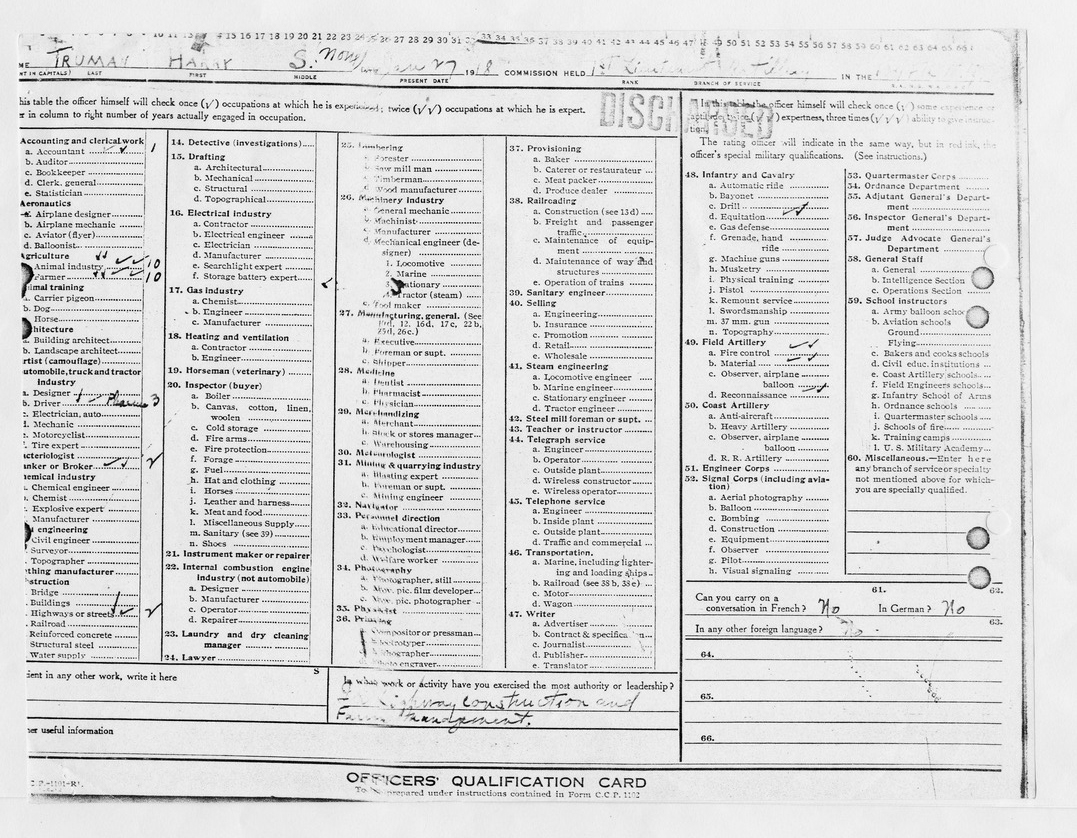 15 16 17 18 19 20 21 22 23 24 25 26 27 28 29 30 31 32 33 34 35 36 37 38 39 40 41 42 43 44 45 46 47 48 49 50 51 52 53 54 55 56 57 58 59 60 61 62 63 64 65 66
TRUMAN HARRY S. 27 1918 COMMISSION HELD 1st IN THE
NT IN CAPITALS) LAST FIRST MIDDLE PRESENT DATE RANK BRANCH OF SERVICE
DISCHARGED
his table the officer himself will check once (√) occupations at which he is experienced; twice (√√) occupations at which he is expert.
er in column to right number of years actually engaged in occupation.
Accounting and clerical work
a. Accountant √√ 1
b. Auditor
c. Bookkeeper
d. Clerk, general
e. Statistician
Aeronautics
Airplane designer
b. Airplane mechanic
c. Aviator (flyer)
d. Balloonist
griculture
Animal industry √√ √√ 10
Farmer √√ √√ 10
imal training
. Carrier pigeon
b. Dog
Horse
hitecture
. Building architect
b. Landscape architect
rtist (camouflage)
utomobile, truck and tractor
industry
a. Designer
b. Driver 3
c. Electrician, auto
d. Mechanic
e. Motorcyclist
. Tire expert
acteriologist
anker or Broker √√ 2
hemical industry
. Chemical engineer
. Chemist
. Explosive expert
. Manufacturer
l engineering
Civil engineer
Surveyor
Topographer
thing manufacturer
struction
Bridge
Buildings
Highways or streets √√ 2
Railroad
Reinforced concrete
Structural steel
Water supply
14. Detective (investigations)
15. Drafting
a. Architectural
b. Mechanical
c. Structural
d. Topographical
16. Electrical industry
a. Contractor
b. Electrical engineer
c. Electrician
d. Manufacturer
e. Searchlight expert
f. Storage battery expert
17. Gas industry
a. Chemist
b. Engineer
c. Manufacturer
18. Heating and ventilation
a. Contractor
b. Engineer
19. Horseman (veterinary)
20. Inspector (buyer)
a. Boiler
b. Canvas, cotton, linen,
woolen
c. Cold storage
d. Fire arms
e. Fire protection
f. Forage
g. Fuel
h. Hat and clothing
i. Horses
j. Leather and harness
k. Meat and food
l. Miscellaneous Supply
m. Sanitary (see 39)
n. Shoes
21. Instrument maker or repairer
22. Internal combustion engine
industry (not automobile)
a. Designer
b. Manufacturer
c. Operator
d. Repairer
23. Laundry and dry cleaning
manager
24. Lawyer
25. Lumbering
Forester
Saw mill man
Timberman
Wood manufacturer
26. Machinery industry
General mechanic
Machinist
Manufacturer
d. Mechanical engineer (de-
signer)
1. Locomotive
2. Marine
Stationary
Tractor (steam)
Tool maker
27. Manufacturing, general. (See
12, 16d, 17c, 22b,
25d, 26c.)
a. Executive
b. Foreman or supt.
c. Shipper
28. Medicine
a. Dentist
b. Pharmacist
c. Physician
29. Merchandizing
a. Merchant
b. Stock or stores manager
c. Warehousing
30. Meteorologist
31. Mining & quarrying industry
a. Blasting expert
b. Foreman or supt.
c. Mining engineer
32. Navigator
33. Personnel direction
a. Educational director
b. Employment manager
c. Psychologist
d. Welfare worker
34. Photography
a. Photographer, still
b. Mov. pic. film developer
c. Mov. pic. photographer
35. Physicist
36. Printing
Compositor or pressman
Electrotyper
Photographer
Photo engraver
37. Provisioning
a. Baker
b. Caterer or restaurateur
c. Meat packer
d. Produce dealer
38. Railroading
a. Construction (see 13d)
b. Freight and passenger
traffic
c. Maintenance of equip-
ment
d. Maintenance of way and
structures
e. Operation of trains
39. Sanitary engineer
40. Selling
a. Engineering
b. Insurance
c. Promotion
d. Retail
e. Wholesale
41. Steam engineering
a. Locomotive engineer
b. Marine engineer
c. Stationary engineer
d. Tractor engineer
42. Steel mill foreman or supt.
43. Teacher or instructor
44. Telegraph service
a. Engineer
b. Operator
c. Outside plant
d. Wireless constructor
e. Wireless operator
45. Telephone service
a. Engineer
b. Inside plant
c. Outside plant
d. Traffic and commercial
46. Transportation.
a. Marine, including lighter-
ing and loading ships
b. Railroad (see 38b, 38e)
c. Motor
d. Wagon
47. Writer
a. Advertiser
b. Contract & specification
c. Journalist
d. Publisher
e. Translator
In this table the officer himself will check once (√) some experience or
aptitude, twice (√√) expertness, three times (√√√) ability to give instruc-
tion.
The rating officer will indicate in the same way, but in red ink, the
officer's special military qualifications. (See instructions.)
48. Infantry and Cavalry
a. Automatic rifle
b. Bayonet
c. Drill
d. Equitation √√
e. Gas defense
f. Grenade, hand
rifle
g. Machine guns
h. Musketry
i. Physical training
j. Pistol
k. Remount service
l. Swordsmanship
m. 37 mm. gun
n. Topography
49. Field Artillery √√
a. Fire control
b. Material √√
c. Observer, airplane
balloon √√
d. Reconnaissance
50. Coast Artillery
a. Anti-aircraft
b. Heavy Artillery
c. Observer, airplane
balloon
d. R. R. Artillery
51. Engineer Corps
52. Signal Corps (including avia-
tion)
a. Aerial photography
b. Balloon
c. Bombing
d. Construction
e. Equipment
f. Observer
g. Pilot
h. Visual signaling
53. Quartermaster Corps
54. Ordnance Department
55. Adjutant General's Depart-
ment
56. Inspector General's Depart-
ment
57. Judge Advocate General's
Department
58. General Staff
a. General
b. Intelligence Section
c. Operations Section
59. School instructors
a. Army balloon schoo
b. Aviation schools
Ground
Flying
c. Bakers and cooks schools
d. Civil educ. institutions
e. Coast Artillery schools
f. Field Engineers schools
g. Infantry School of Arms
h. Ordnance schools
i. Quartermaster schools
j. Schools of fire
k. Training camps
l. U. S. Military Academy
60. Miscellaneous.—Enter here
any branch of service or specialty
not mentioned above for which
you are specially qualified.
61. 62.
Can you carry on a
conversation in French? No In German? No
63.
In any other foreign language?
64.
65.
66.
ient in any other work, write it here
S
In what work or activity have you exercised the most authority or leadership?
Highway construction and
Farm Management.
her useful information
OFFICERS' QUALIFICATION CARD
To be prepared under instructions contained in Form C.C.P. 1102